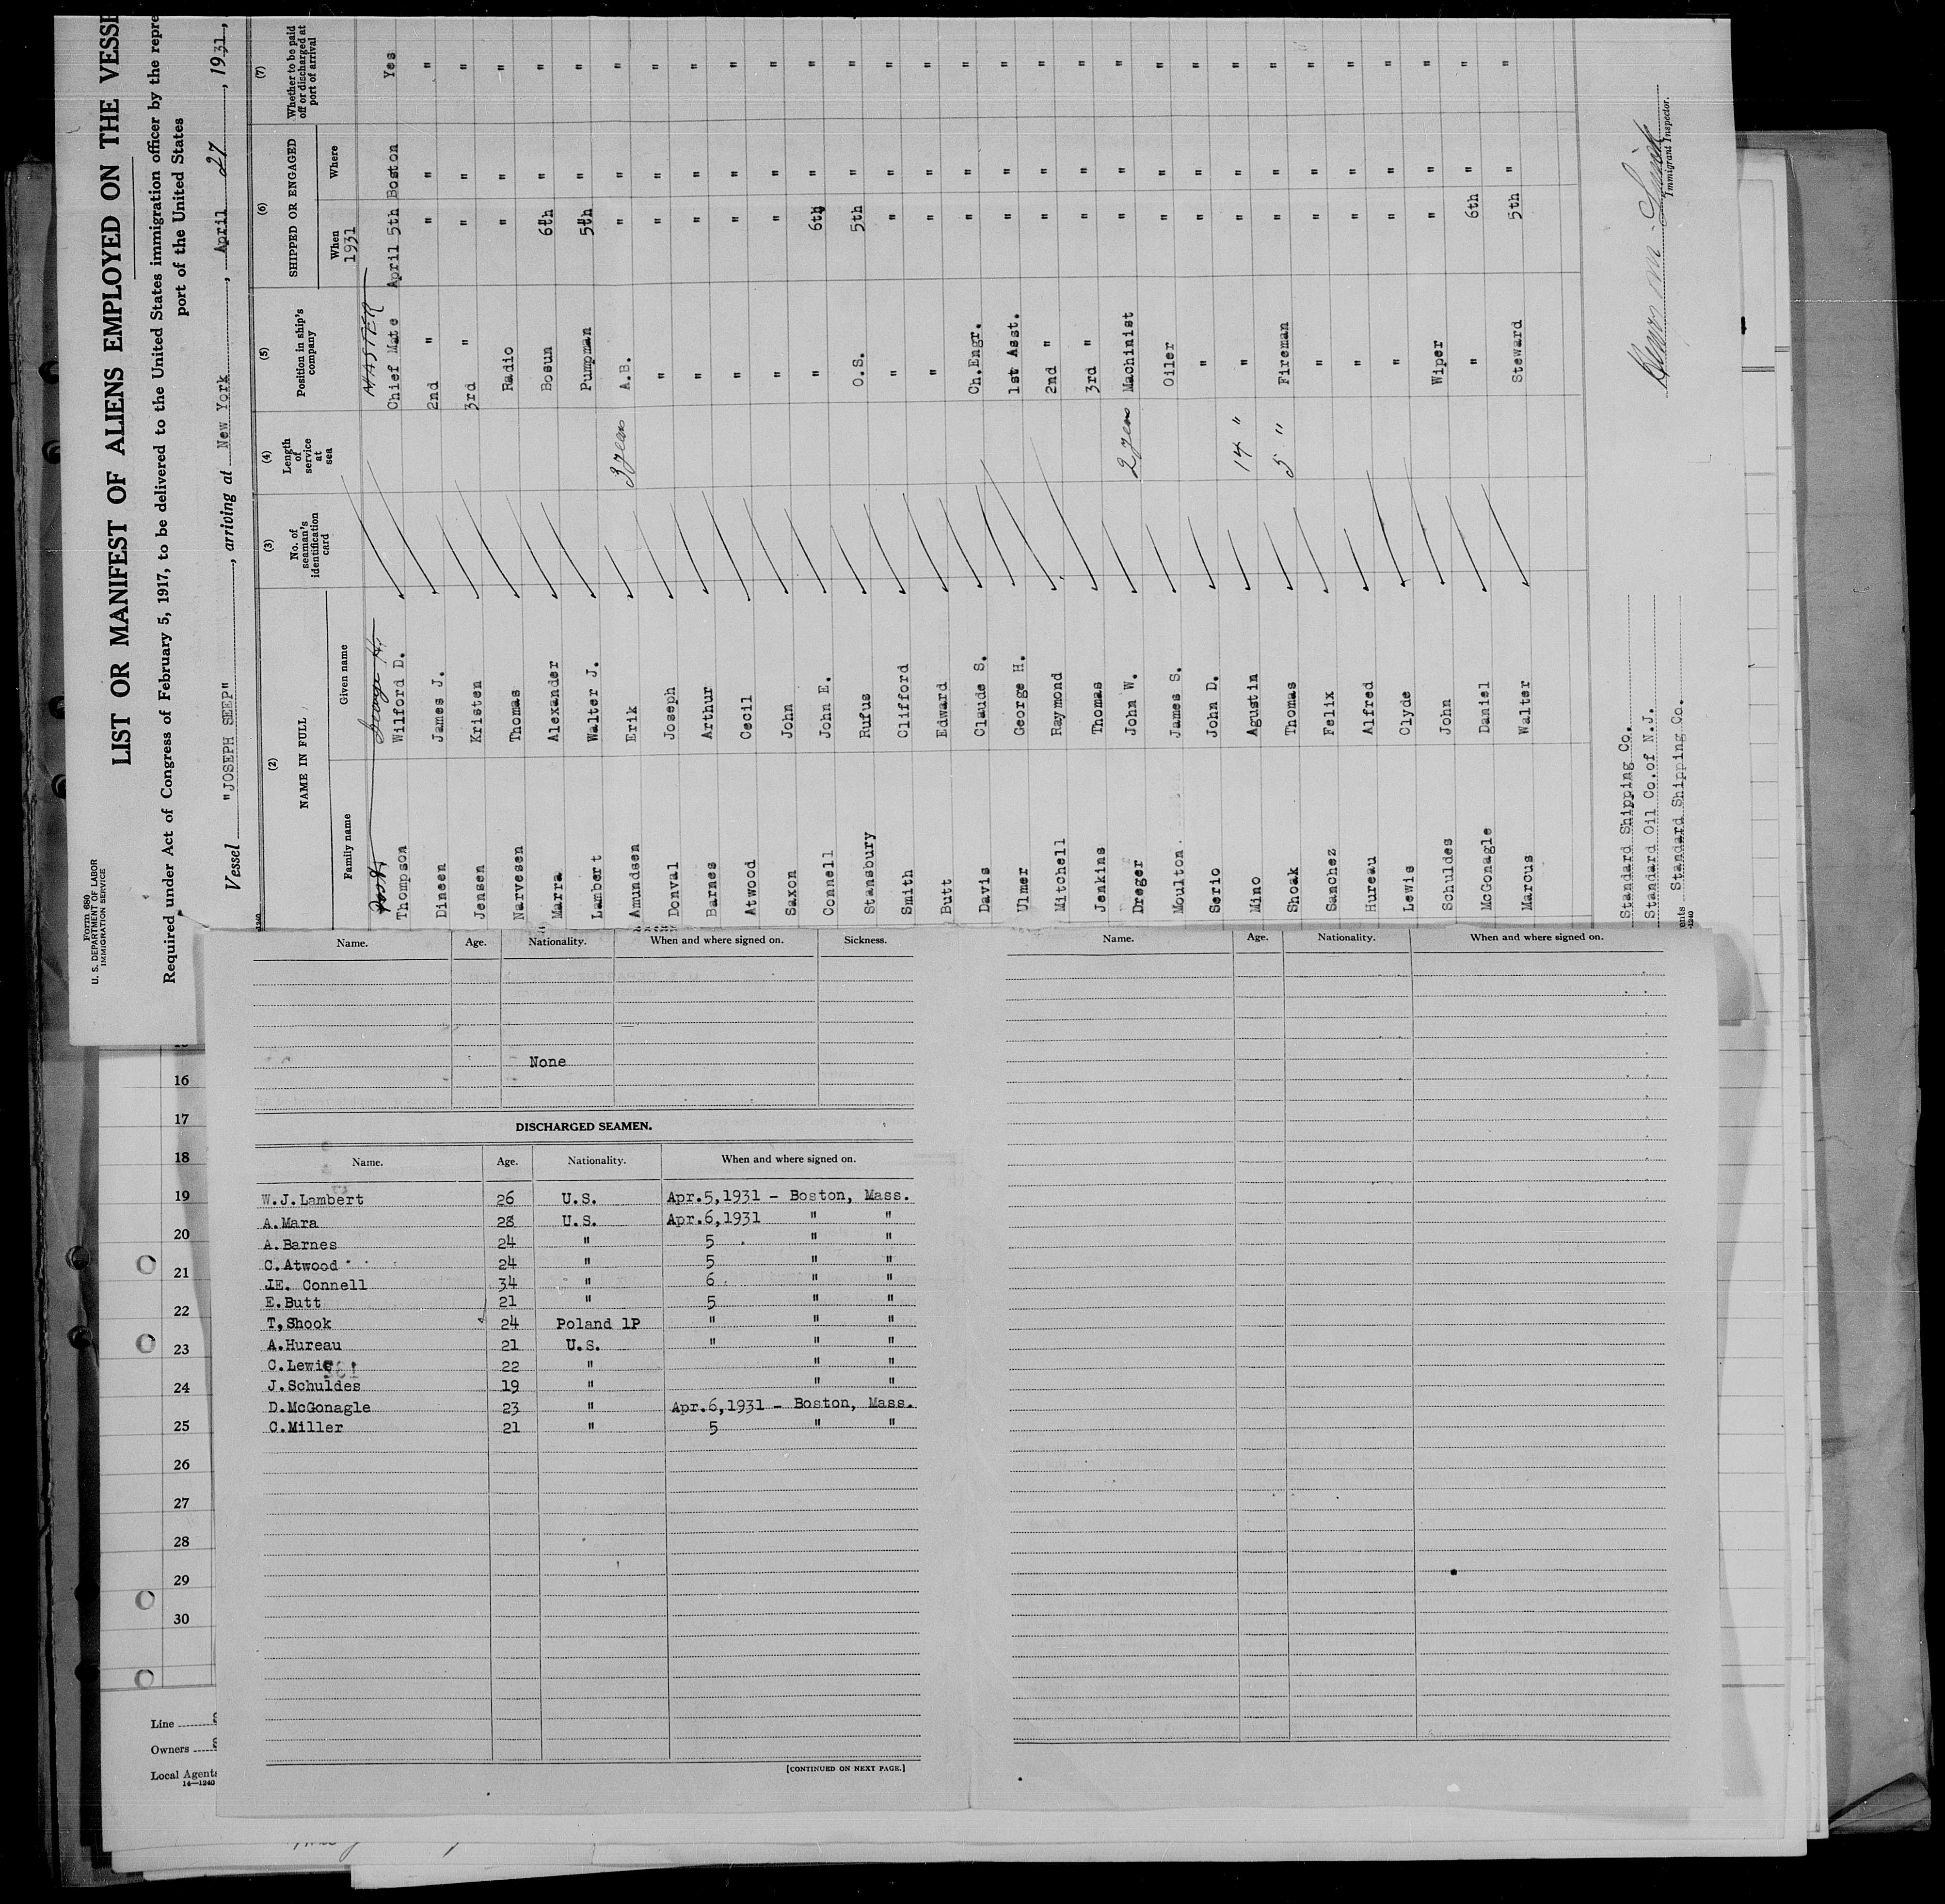 Form 680
U. S. DEPARTMENT OF LABOR
IMMIGRATION SERVICE
LIST OR MANIFEST OF ALIENS EMPLOYED ON THE VESSE
Required under Act of Congress of February 5, 1917, to be delivered to the United States immigration officer by the repre
port of the United States
Vessel "JOSEPH SEEP", arriving at New York, April 27, 1931,
(2) (3) (4) (5) (6) (7)
NAME IN FULL No. of seaman's identification card Length of service at sea Position in ship's company SHIPPED OR ENGAGED Whether to be paid off or discharged at port of arrival
Family name Given name When 1931 Where
George H. MASTER
Thompson Wilford D. Chief Mate April 5th Boston Yes
Dineen James J. 2nd " " " "
Jensen Kristen 3rd " " " "
Narvesen Thomas Radio " " "
Marra Alexander Bosun 6th " "
Lambert Walter J. Pumpman 5th " "
Amundsen Erik 3 years A.B. " " "
Donval Joseph " " " "
Barnes Arthur " " " "
Atwood Cecil " " " "
Saxon John " " " "
Connell John E. " 6th " "
Stansbury Rufus O.S. 5th " "
Smith Clifford " " " "
Butt Edward " " " "
Davis Claude S. Ch.Engr. " " "
Ulmer George H. 1st Asst. " " "
Mitchell Raymond 2nd " " " "
Jenkins Thomas 3rd " " " "
Dreger John W. 2 years Machinist " " "
Moulton James S. Oiler " " "
Serio John D. " " " "
Mino Agustin 14 " " " " "
Shoak Thomas 5 " Fireman " " "
Sanchez Felix " " " "
Hureau Alfred " " " "
Lewis Clyde " " " "
Schuldes John Wiper " " "
McGonagle Daniel " 6th " "
Marcus Walter Steward 5th " "
Standard Shipping Co.
Standard Oil Co.of N.J.
ents Standard Shipping Co.
Immigrant Inspector.
Name. Age. Nationality. When and where signed on. Sickness.
None
DISCHARGED SEAMEN.
Name. Age. Nationality. When and where signed on.
W.J.Lambert 26 U.S. Apr.5,1931 - Boston, Mass.
A.Mara 28 U.S. Apr.6,1931 " "
A.Barnes 24 " 5 " "
C.Atwood 24 " 5 " "
JE. Connell 34 " 6 " "
E.Butt 21 " 5 " "
T,Shook 24 Poland 1P " " "
A.Hureau 21 U.S. " " "
C.Lewis 22 " " "
J.Schuldes 19 " " "
D.McGonagle 23 " Apr.6,1931 - Boston, Mass.
C.Miller 21 " 5 " "
[CONTINUED ON NEXT PAGE.]
Name. Age. Nationality. When and where signed on.
16
17
18
19
20
21
22
23
24
25
26
27
28
29
30
Line
Owners
Local Agents
14—1240